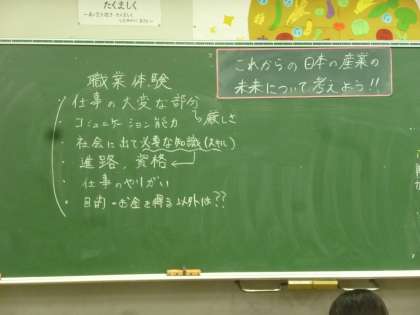 たくましく
職業体験
仕事の大変な部分
・コミュニケーション能力
↳厳しさ
・社会に出て必要な知識(スキル)
・進路、資格
・仕事のやりがい
・目的→お金を得る以外は??
これからの日本の産業の
未来について考えよう!!